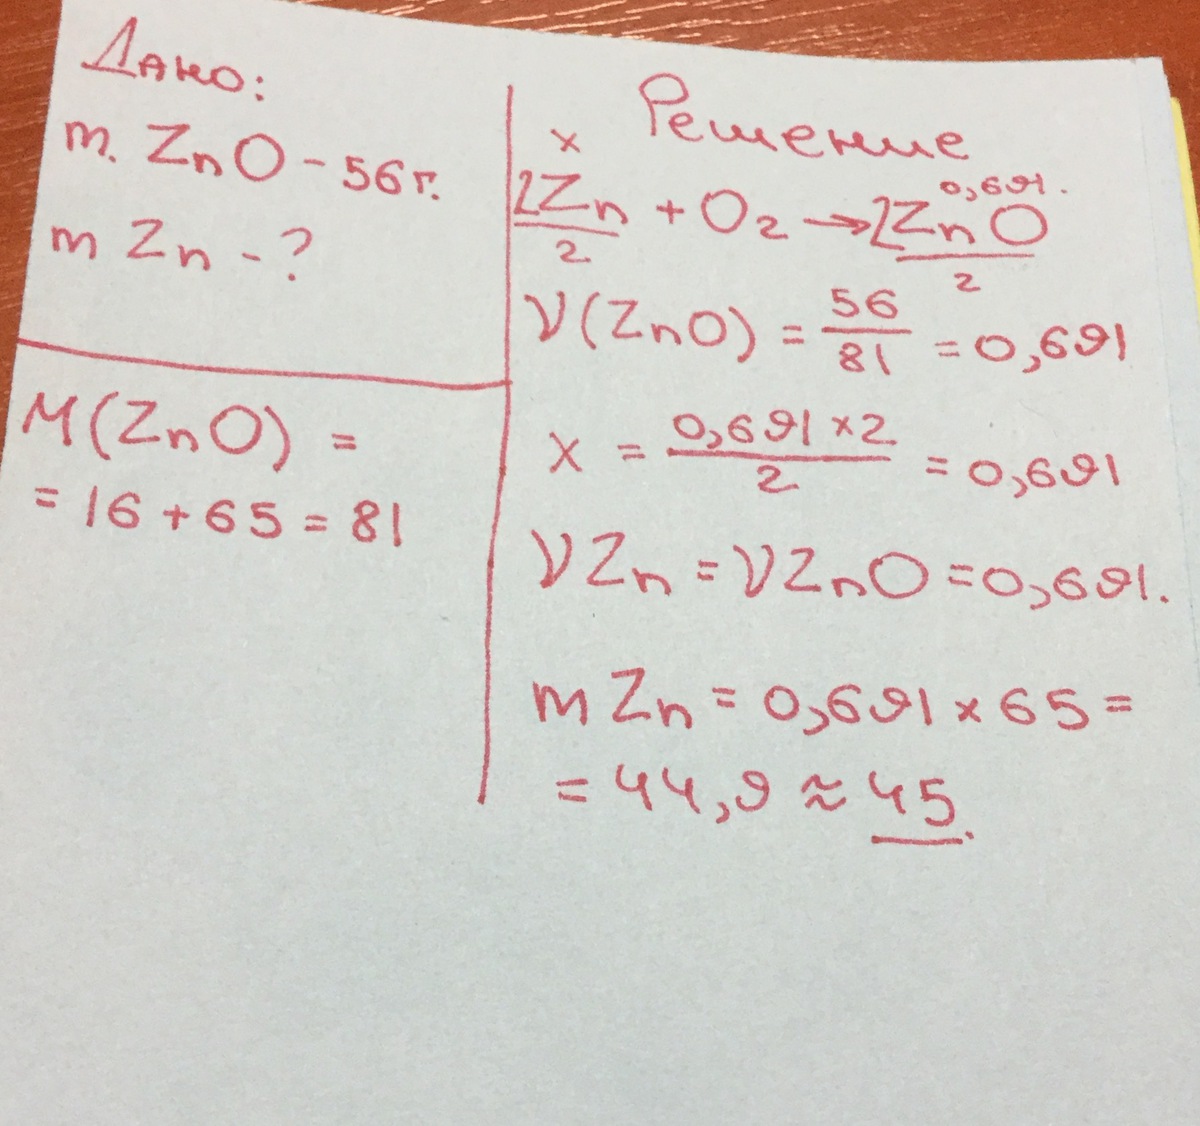 Дано:
m. ZnO - 56 г.
m Zn - ?
M(ZnO) =
= 16 + 65 = 81
Решение
x 0,691.
2Zn + O₂ → 2ZnO
2 2
ν(ZnO) = 56/81 = 0,691
x = 0,691 × 2 / 2 = 0,691
ν Zn = ν ZnO = 0,691.
m Zn = 0,691 × 65 =
= 44,9 ≈ 45.